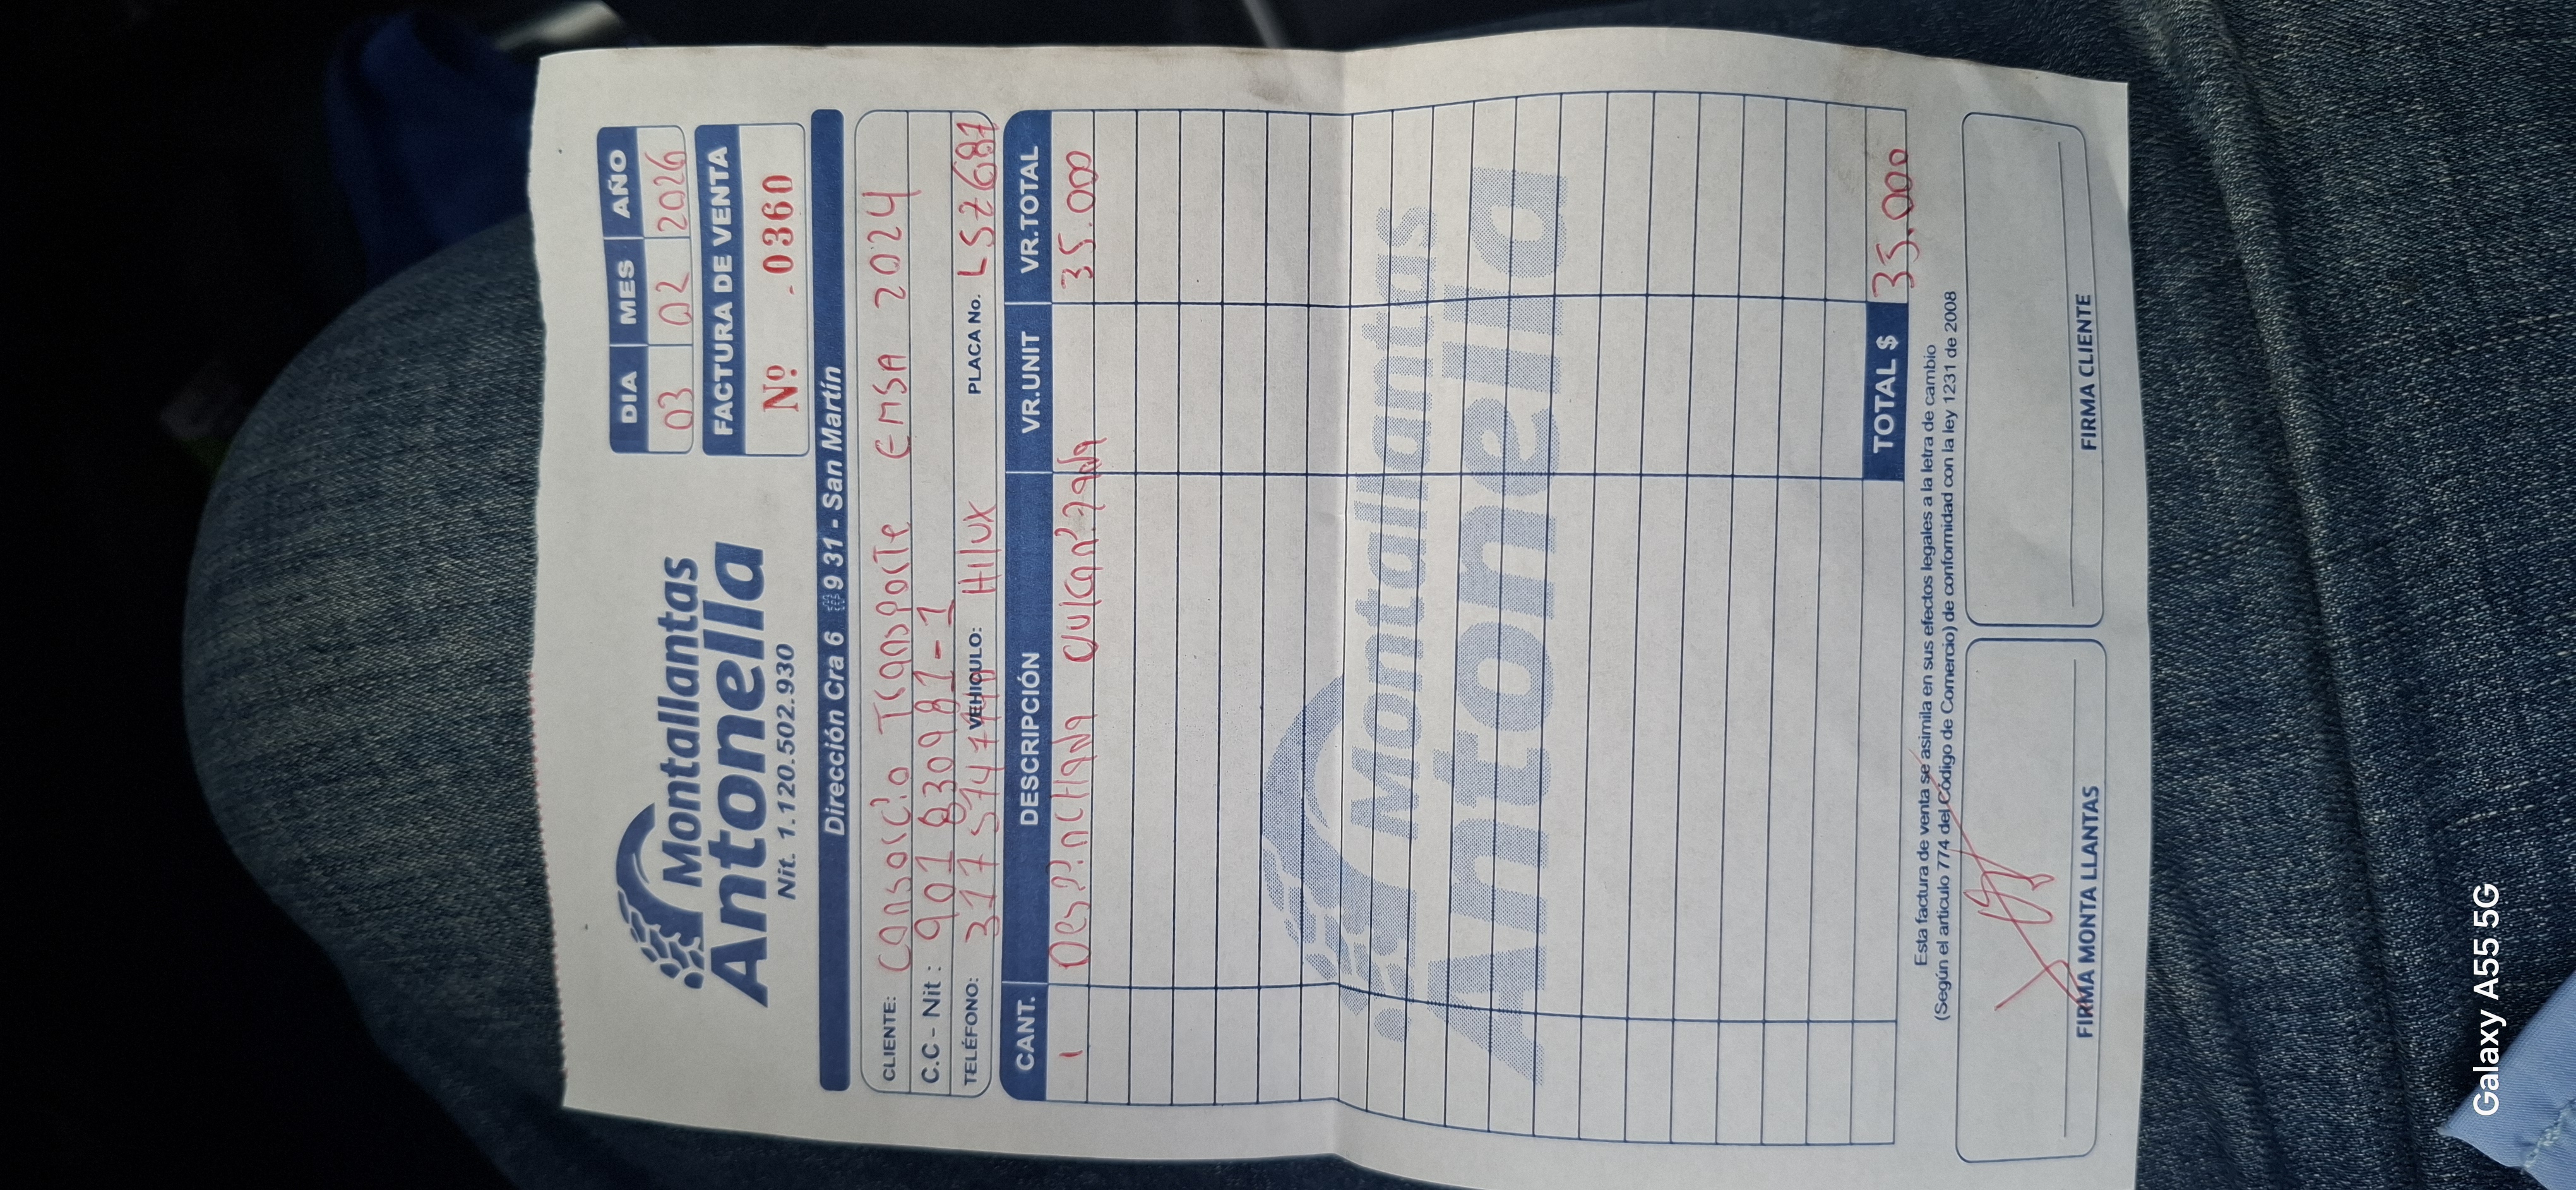 Montallantas
Antonella
Nit. 1.120.502.930
DIA MES AÑO
03 02 2026
FACTURA DE VENTA
Nº - 0360
Dirección Cra 6 # 9 31 - San Martín
CLIENTE: Consorcio Transporte EMSA 2024
C.C - Nit: 901 830981-1
TELÉFONO: 317 VEHICULO: Hilux PLACA No. LSZ687
CANT. DESCRIPCIÓN VR.UNIT VR.TOTAL
1 Despinchada 35.000
Montallantas
Antonella
TOTAL $ 35.000
Esta factura de venta se asimila en sus efectos legales a la letra de cambio
(Según el articulo 774 del Código de Comercio) de conformidad con la ley 1231 de 2008
FIRMA MONTA LLANTAS FIRMA CLIENTE
Galaxy A55 5G